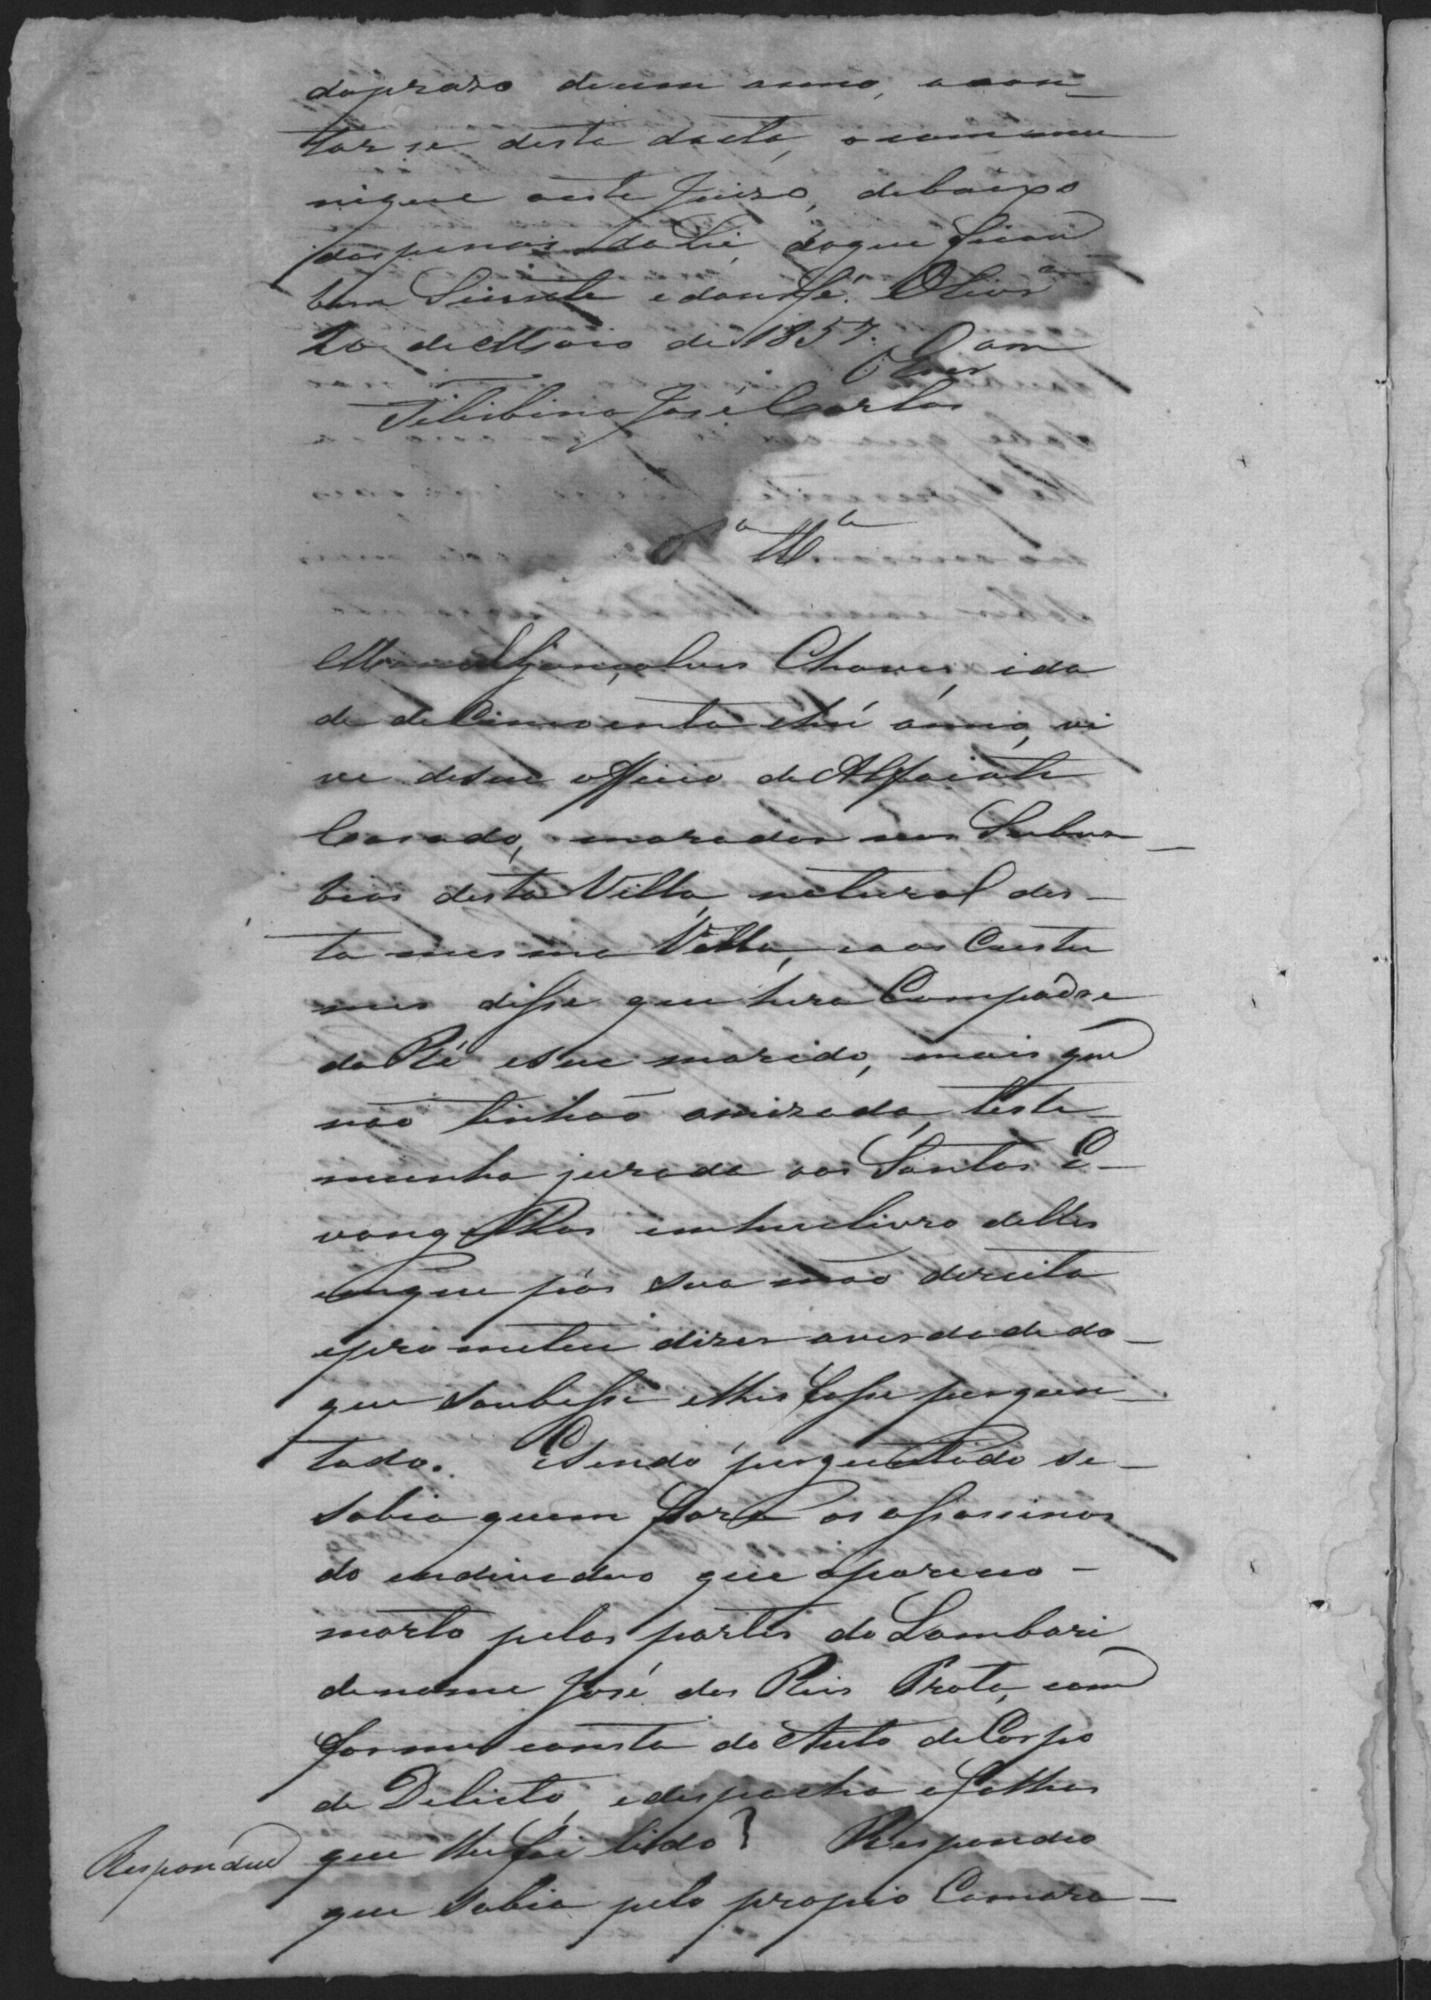 do praso de um anno, a con_
tar se desta dacta, o commu
nique aeste Juiso, debaixo
das penas da Lei, do que ficou
bem Siente e dou fé. Olivrª
20 de Maio de 1857. Eu
José Carlos
Tª Mª
Manoel Gonçalves Chaves, ida
de de Cincoenta e tres annos, vi
ve deseu officio de Alfaiate
Casado, morador nos Subur_
bios desta Villa, natural des_
ta mesma Villa, e aos Custu
mes disse que hera Compadre
da Ré eseu marido, mais que
não tinhão amizade, teste
munha jurada aos Santos E_
vangelhos em hum livro delles
emque pôs sua mão direita
eprometeu dizer averdade do_
que soubesse elhe fosse pergun_
tado. Esendo perguntado se_
sabia quem fora os assassinos
do endeviduo que apareceo_
morto pelas partes do Lambari
denome José dos Reis Prata, com
forme consta do Auto de Corpo
de Delicto, e despacho e folhas
que lhe foi lido? Respondeo
Respondeu
que sabia pelo proprio Camara_